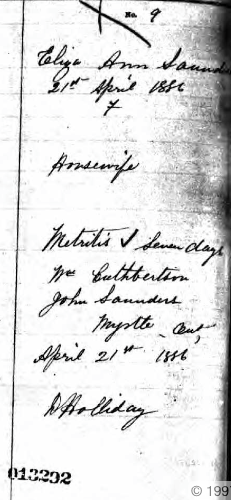 No. 9
Eliza Ann Saund
21st April 1886
F
Housewife
Metritis Seven days
Wm Cuthbertson
John Saunders
Myrtle Ont,
April 21st 1886
D Holliday
013292
© 199